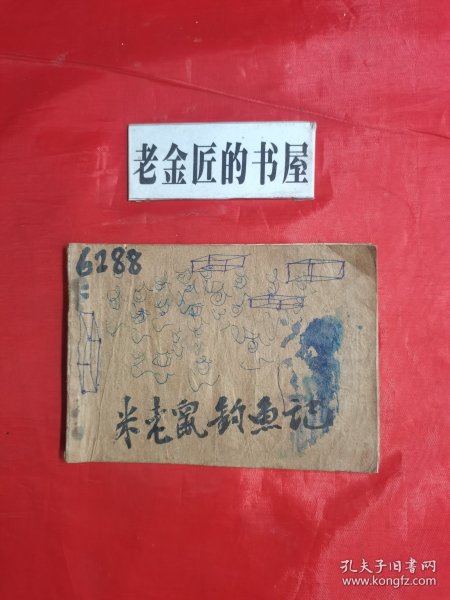 老金匠的书屋
6288
米老鼠钓鱼记
孔夫子旧书网
www.kongfz.com